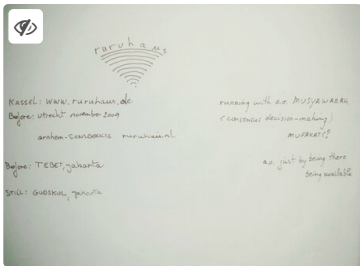 ruruhaus
Kassel: www.ruruhaus.de
Before: utrecht november 2009
arnhem-SONSBEEK ruruhuis.nl
Before: TEBET, jakarta
STILL: GUDSKUL, jakarta
running with a.o. MUSYAWARAH
(consensus decision-making)
MUFAKAT
a.o. just by being there
being available